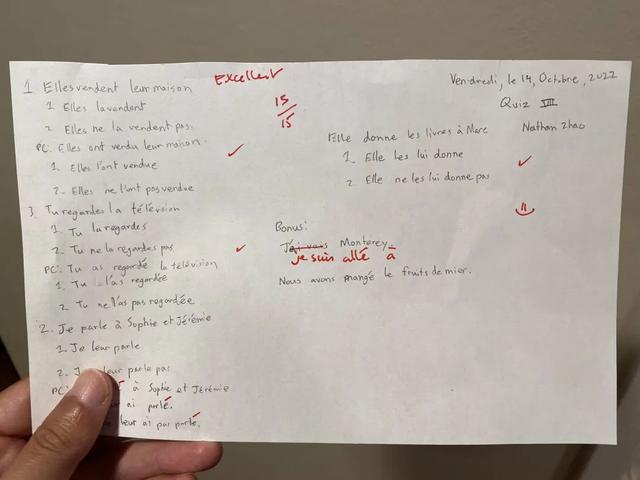 Excellent
15
15
Vendredi, le 14, Octobre, 2022
Quiz VIII
Nathan Zhao
1 Elles vendent leur maison
1 Elles la vendent
2 Elles ne la vendent pas.
PC: Elles ont vendu leur maison.
1. Elles l'ont vendue
2. Elles ne l'ont pas vendue
3. Tu regardes la télévision
1 Tu la regardes
2. Tu ne la regardes pas
PC: Tu as regardé la télévision
1. Tu l'as regardée
2. Tu ne l'as pas regardée
2. Je parle à Sophie et Jérémie
1. Je leur parle
2. leur parle pas
PC: à Sophie et Jérémie
ai parlé.
leur ai pas parlé.
Elle donne les livres à Marc
1. Elle les lui donne
2 Elle ne les lui donne pas
Bonus:
Monterey.
je suis allé à
Nous avons mangé le fruits de mier.